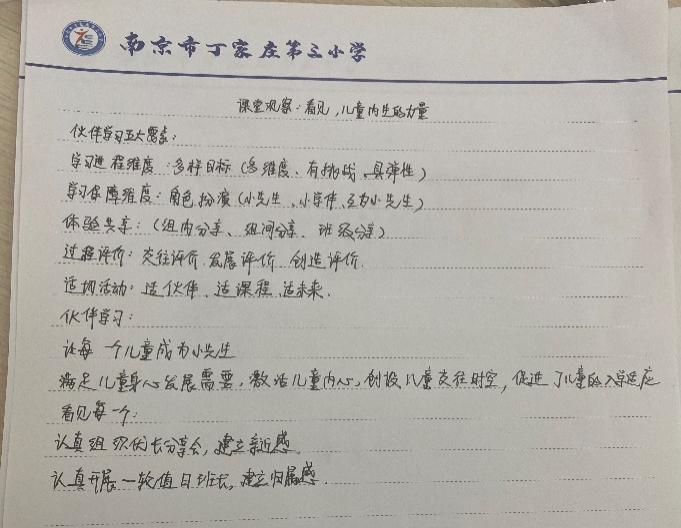 南京市丁家庄第三小学
课堂观察：看见，儿童内生的力量
伙伴学习五大要素：
学习进程维度：多样目标（多维度、有挑战、具弹性）
学习保障维度：角色扮演（小先生、小学伴、互为小先生）
体验共享：（组内分享、组间分享、班级分享）
过程评价：交往评价 发展评价 创造评价
适切活动：适伙伴、适课程、适未来.
伙伴学习：
让每一个儿童成为小先生
满足儿童身心发展需要，激活儿童内心，创设儿童交往时空，促进了儿童的入学适应
看见每一个：
认真组织伙长分享会，建立亲近感.
认真开展一轮值日班长，建立归属感.